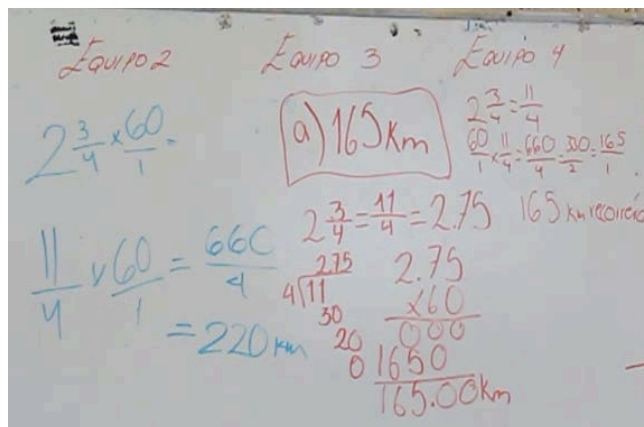 Equipo 2
2 3/4 × 60/1 =
11/4 × 60/1 = 660/4
= 220 km
Equipo 3
a) 165 Km
2 3/4 = 11/4 = 2.75
2.75
4√11
30
20
0
2.75
×60
000
1650
165.00 km
Equipo 4
2 3/4 = 11/4
60/1 × 11/4 = 660/4 = 330/2 = 165/1
165 km